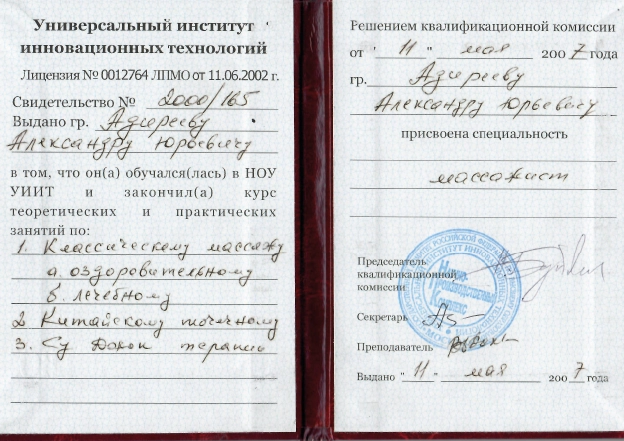 Универсальный институт
инновационных технологий
Лицензия № 0012764 ЛПМО от 11.06.2002 г.
Свидетельство № 2000/165
Выдано гр.
Александру Юрьевичу
в том, что он(а) обучался(лась) в НОУ
УИИТ и закончил(а) курс
теоретических и практических
занятий по:
1. Классическому массажу
а. оздоровительному
б. лечебному
2. Китайскому точечному
3. Су Джок терапии
Решением квалификационной комиссии
от "11" мая 2007 года
гр.
Александру Юрьевичу
присвоена специальность
массажист
Председатель
квалификационной
комиссии
Секретарь
Преподаватель
Выдано "11" мая 2007 года